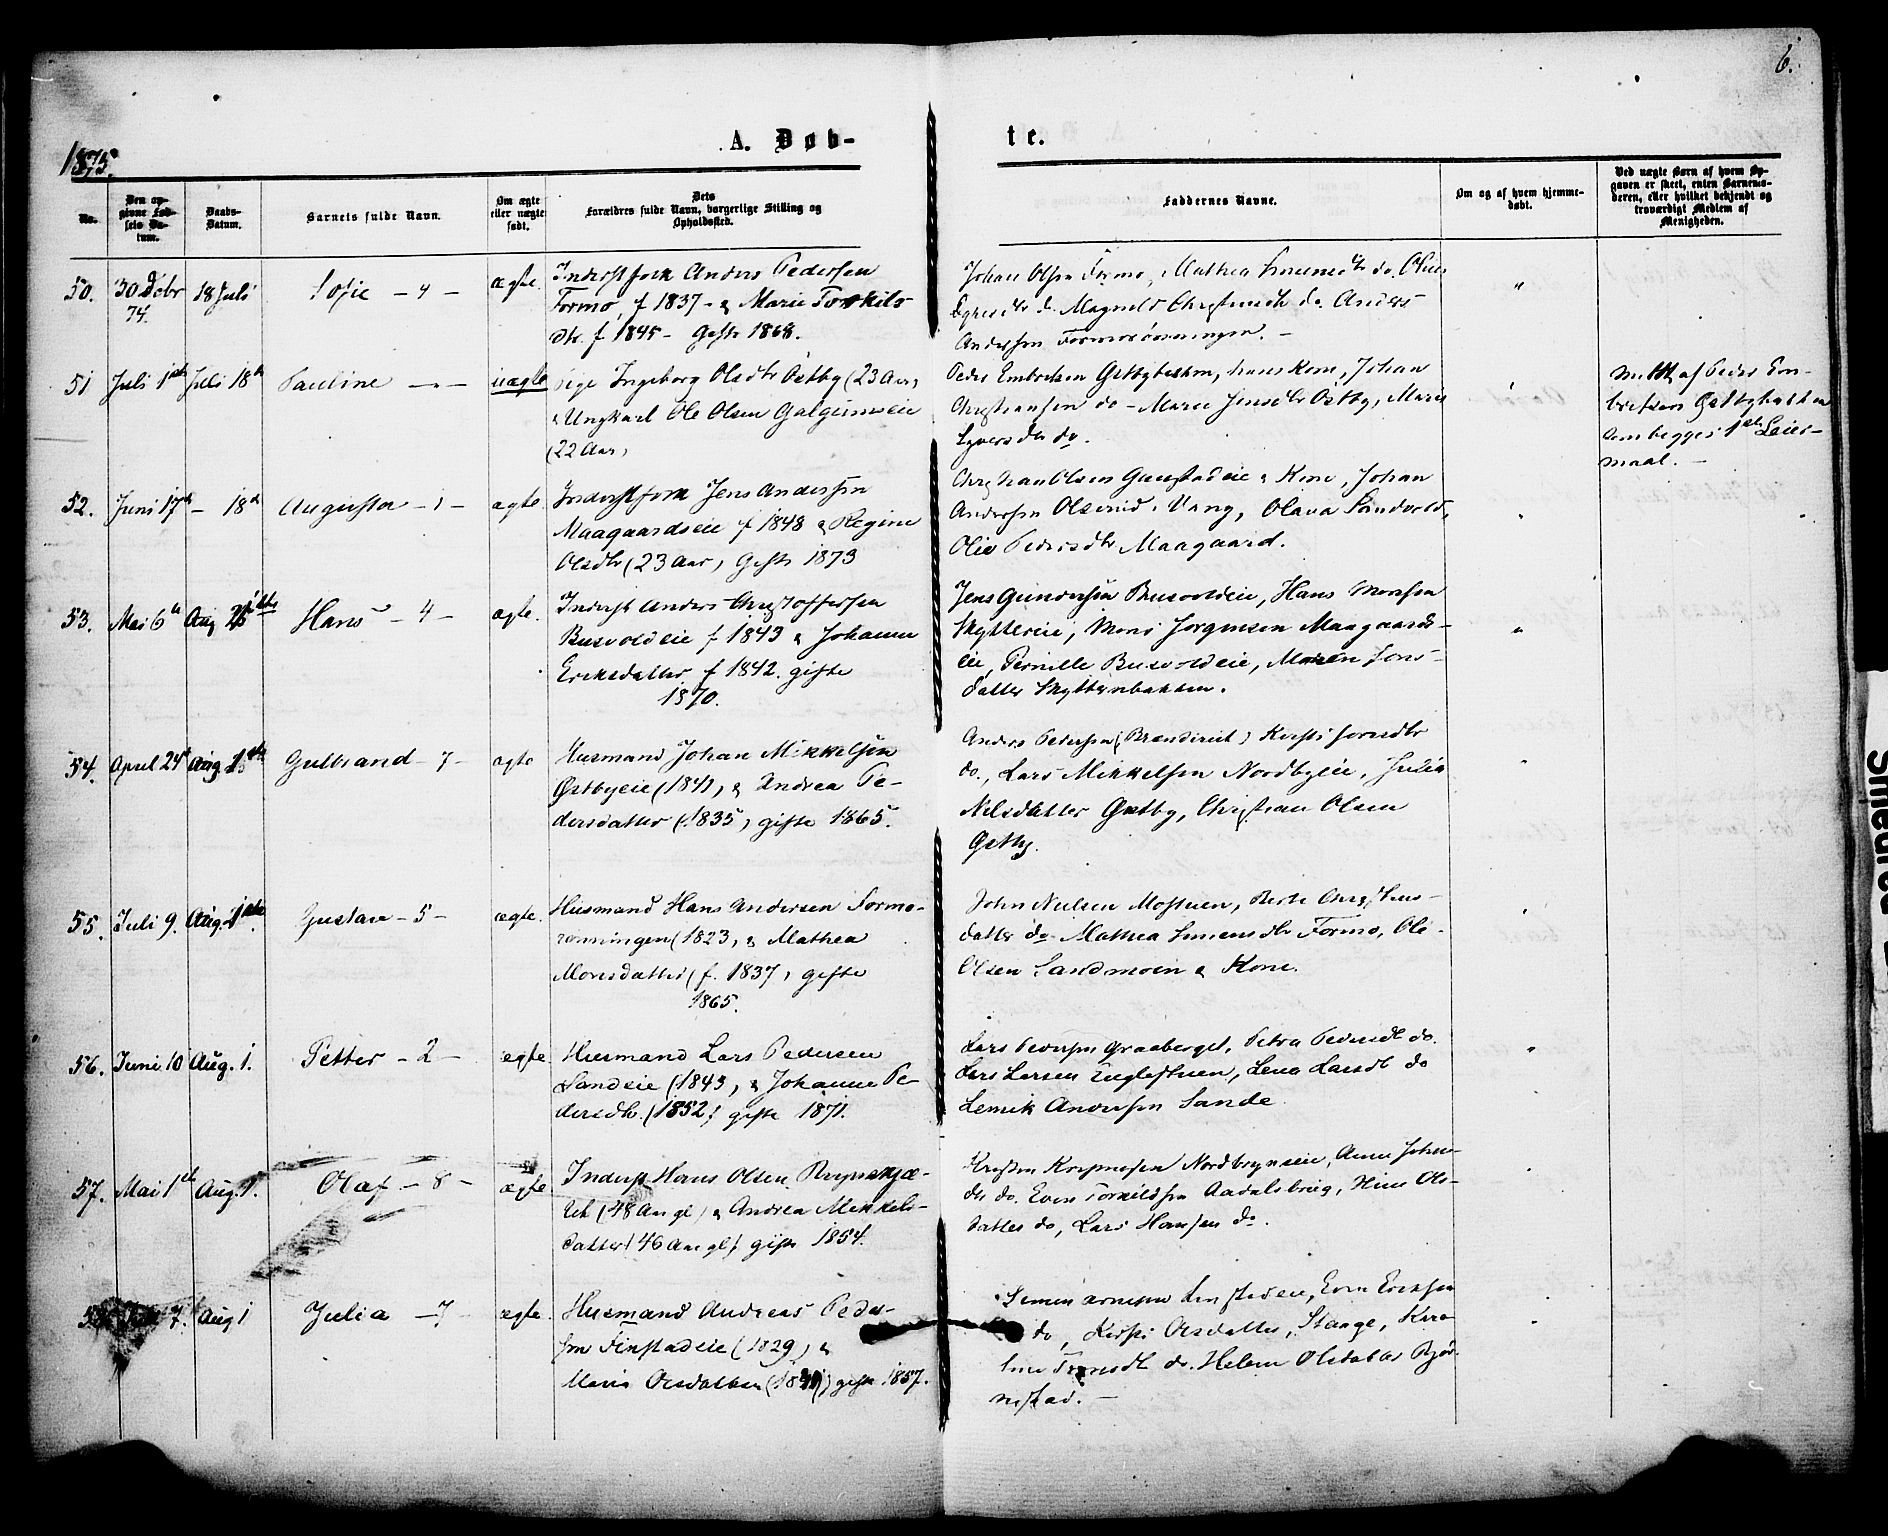 6.
A. Døb-
te.
1875.
No.
Den op-
givne Fød-
sels Da-
tum.
Daabs-
Datum.
Barnets fulde Navn.
Om ægte
eller uægte
født.
Dets
Forældres fulde Navn, borgerlige Stilling og
Opholdssted.
Faddernes Navne.
Om og af hvem hjemme-
døbt.
Ved uægte Børn af hvem Op-
gaven er skeet, enten Barnemo-
deren, eller hvilket bekjendt og
troværdigt Medlem af
Menigheden.
50. 30 Debr 18 Juli Sofie – 4 – ægte. Inderstfolk Anders Pedersen
74.
Formo, f 1837 – & Marie Torkils
dtr. f 1845 – Gifte 1868.
Johan Olsen Formo, Mathea Simensdtr do. Oline
dtr do Magnild do Anders
Andersen Formorønningen. – "
51 Juli 1ste Juli 18de Pauline – – uægte Pige Ingeborg Olsdtr Østby (23 Aar)
& Ungkarl Ole Olsen Galgumseie
(22 Aar)
Peder Embretsen Østbybakken, hans Kone, Johan
Christiansen do – Maren Jensdtr Østby, Marie
Syversdtr do.
af Peder Em-
bretsen Østbybakken
begges 1ste Leier-
maal. –
52. Juni 17de – 18de Augusta – 1 – ægte Inderstfolk Jens Andersen
Maagaardseie f 1848 & Regine
Olsdtr (23 Aar, Gifte 1873
Christian Olsen & Kone, Johan
Andersen i Vang, Olava Sandvold,
Olia Pedersdtr Maagaard.
53. Mai 6te Aug Hans – 4 – ægte. Inderst Anders Christoffersen
Busvoldeie f 1843 & Johanne
Eriksdatter f 1842. gifte
1870.
Jens Gundersen Busvoldeie, Hans Monsen
Skyttereie, Mons Jørgensen Maagaards-
eie, Pernille Busvoldeie, Maren Jons-
datter Skytterbakken. "
54. April 24de Aug. 1ste Gulbrand – 7 – ægte Husmand Johan Mikkelsen
Østbyeie (1841) & Andrea Pe-
dersdatter (1835) gifte 1865.
Anders Pedersen (Brænderiet) Kirsti
do., Lars Mikkelsen Nordbyeie, Julia
Nilsdatter Østby, Christian Olsen
Østby.
55. Juli 9. Aug. 1ste Gustav – 5 – ægte. Husmand Hans Andersen Formo-
rønningen (1823, & Mathea
Monsdatter (f. 1837) gifte
1865.
John Nielsen Mostuen, Berte
datter do Mathea Simensdtr Formo, Ole
Olsen Sandmoen & Kone.
56. Juni 10 Aug. 1. Petter – 2 – ægte Husmand Lars Pedersen
Sandeie (1843, & Johanne Pe-
dersdtr. (1852) gifte 1871.
Lars Pedersen Graaberget, Petra Pedersdtr do.
Lars Larsen Lena Larsdtr do
Andersen Sande
57. Mai 1ste Aug. 1. Olaf – 8 – ægte Inderst Hans Olsen
(48 Aar gl) & Andrea Mikkels-
datter (46 Aar gl) gifte 1854.
Nordbryneie, Anne
do. Even Torkildsen Aadalsbrug, Ols-
datter do, Lars Hansen do.
7. Aug 1 Julia – 7 – ægte. Husmand Andreas Peder-
sen Finstadeie (1829) &
Maria Olsdatter gifte 1857.
Simen Arnesen Finstadeie, Even Eriksen
do, Kirsti Olsdatter, Stange, Karo-
line do. Helene Olsdatter Bjør-
nstad. –